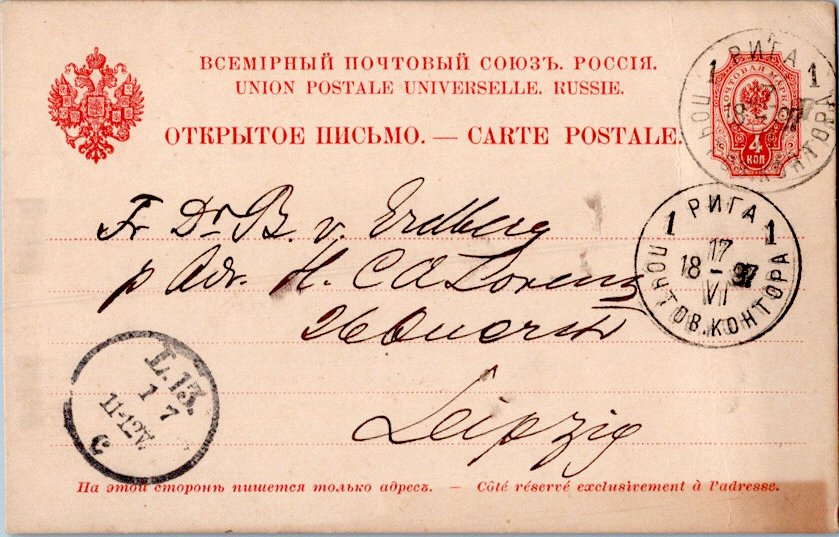 ВСЕМІРНЫЙ ПОЧТОВЫЙ СОЮЗЪ. РОССІЯ.
UNION POSTALE UNIVERSELLE. RUSSIE.
ОТКРЫТОЕ ПИСЬМО. — CARTE POSTALE.
ПОЧТОВАЯ МАРКА
4
КОП
1 РИГА 1
18 97
КОНТОРА
Fr Dr B. v. Erdberg
p Adr. H. C A Lorenz
26 Querstr
Leipzig
1 РИГА 1
17
18 – 97
VI
ПОЧТОВ. КОНТОРА
L. 13.
1 7
11-12V
На этой сторонѣ пишется только адресъ. — Côté réservé exclusivement à l'adresse.